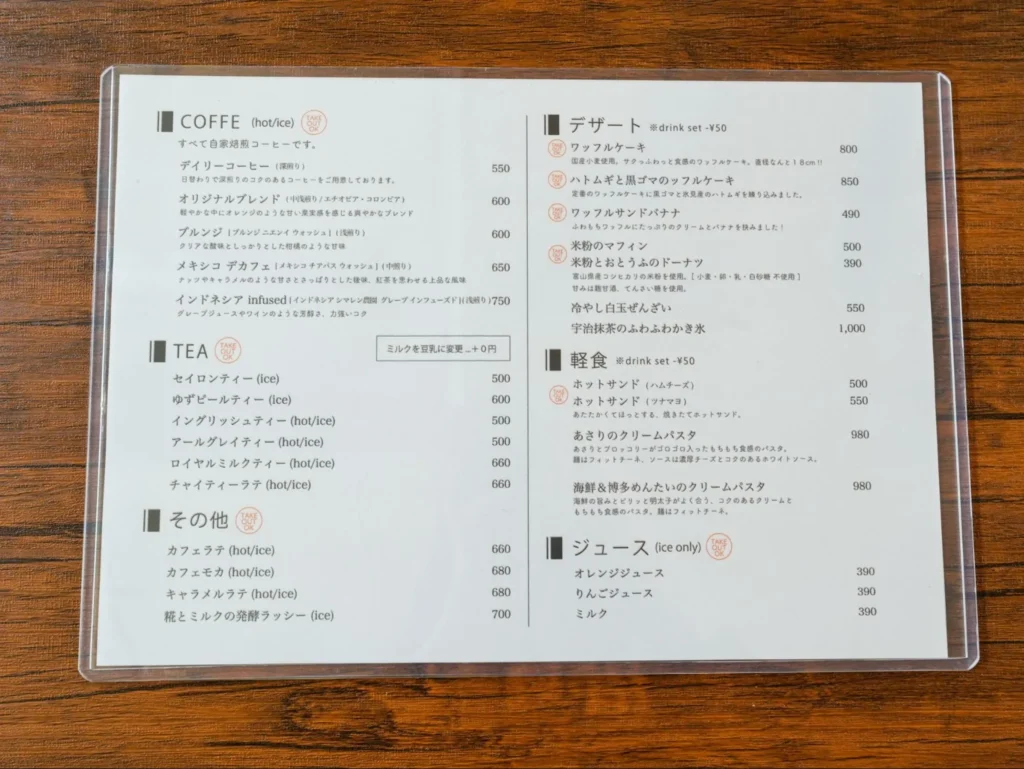 COFFE (hot/ice) TAKE OUT OK
すべて自家焙煎コーヒーです。
デイリーコーヒー (深煎り) 550
日替わりで深煎りのコクのあるコーヒーをご用意しております。
オリジナルブレンド (中浅煎り/エチオピア・コロンビア) 600
軽やかな中にオレンジのような甘い果実感を感じる爽やかなブレンド
ブルンジ [ブルンジ ニエンイ ウォッシュ] (浅煎り) 600
クリアな酸味としっかりとした柑橘のような甘味
メキシコ デカフェ [メキシコ チアパス ウォッシュ] (中煎り) 650
ナッツやキャラメルのような甘さとさっぱりとした後味、紅茶を思わせる上品な風味
インドネシア infused [インドネシア シマレン農園 グレープ インフューズド] (浅煎り) 750
グレープジュースやワインのような芳醇さ、力強いコク
TEA TAKE OUT OK
ミルクを豆乳に変更 …+0円
セイロンティー (ice) 500
ゆずビールティー (ice) 600
イングリッシュティー (hot/ice) 500
アールグレイティー (hot/ice) 500
ロイヤルミルクティー (hot/ice) 660
チャイティーラテ (hot/ice) 660
その他 TAKE OUT OK
カフェラテ (hot/ice) 660
カフェモカ (hot/ice) 680
キャラメルラテ (hot/ice) 680
糀とミルクの発酵ラッシー (ice) 700
デザート ※drink set -¥50
TAKE OUT OK ワッフルケーキ 800
国産小麦使用。サクっふわっと食感のワッフルケーキ。直径なんと18cm!!
TAKE OUT OK ハトムギと黒ゴマのッフルケーキ 850
定番のワッフルケーキに黒ゴマと氷見産のハトムギを練り込みました。
TAKE OUT OK ワッフルサンドバナナ 490
ふわもちワッフルにたっぷりのクリームとバナナを挟みました!
TAKE OUT OK 米粉のマフィン 500
米粉とおとうふのドーナツ 390
富山県産コシヒカリの米粉を使用。[小麦・卵・乳・白砂糖 不使用]
甘みは麹甘酒、てんさい糖を使用。
冷やし白玉ぜんざい 550
宇治抹茶のふわふわかき氷 1,000
軽食 ※drink set -¥50
TAKE OUT OK ホットサンド (ハムチーズ) 500
ホットサンド (ツナマヨ) 550
あたたかくてほっとする、焼きたてホットサンド。
あさりのクリームパスタ 980
あさりとブロッコリーがゴロゴロ入ったもちもち食感のパスタ。
麺はフィットチーネ、ソースは濃厚チーズとコクのあるホワイトソース。
海鮮&博多めんたいのクリームパスタ 980
海鮮の旨みとピリッと明太子がよく合う、コクのあるクリームと
もちもち食感のパスタ。麺はフィットチーネ。
ジュース (ice only) TAKE OUT OK
オレンジジュース 390
りんごジュース 390
ミルク 390